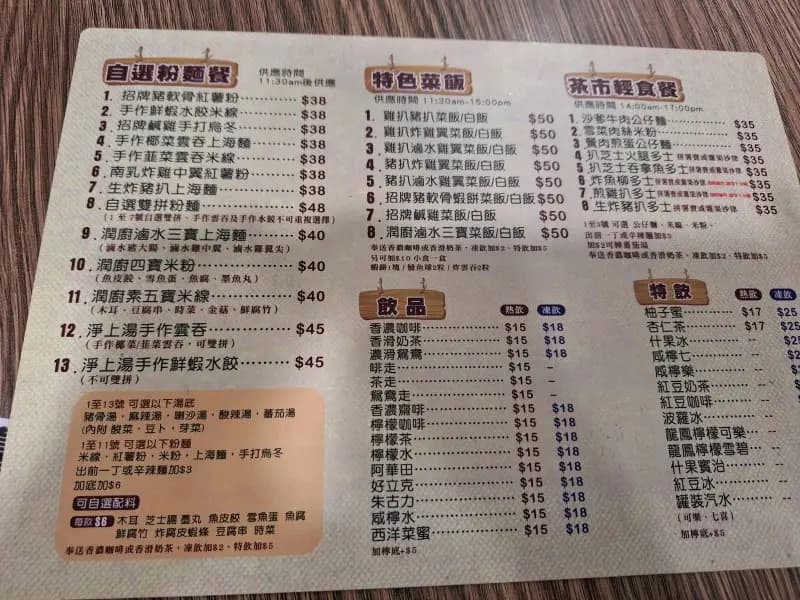 自選粉麵餐
供應時間
11:30am後供應
1. 招牌豬軟骨紅薯粉 $38
2. 手作鮮蝦水餃米線 $38
3. 招牌鹹雞手打烏冬 $38
4. 手作椰菜雲吞上海麵 $38
5. 手作韮菜雲吞米線 $38
6. 南乳炸雞中翼紅薯粉 $38
7. 生炸豬扒上海麵 $38
8. 自選雙拼粉麵 $48
(1 至7號自選雙拼、手作雲吞及手作水餃不可重複選擇)
9. 潤廚滷水三寶上海麵 $40
(滷水豬大腸、滷水雞中翼、滷水雞翼尖)
10. 潤廚四寶米粉 $40
(魚皮餃、雪魚蛋、魚腐、墨魚丸)
11. 潤廚素五寶米線 $40
(木耳、豆腐串、時菜、金菇、鮮腐竹)
12. 淨上湯手作雲吞 $45
(手作椰菜/韮菜雲吞,可雙拼)
13. 淨上湯手作鮮蝦水餃 $45
(不可雙拼)
1至13號 可選以下湯底
豬骨湯,麻辣湯,喇沙湯,酸辣湯,蕃茄湯
(內附 酸菜、豆卜、芽菜)
1至11號 可選以下粉麵
米線,紅薯粉,米粉,上海麵,手打烏冬
出前一丁或辛辣麵加$3
加底加$6
可自選配料
每款$6 木耳 芝士腸 墨丸 魚皮餃 雪魚蛋 魚腐
鮮腐竹 炸腐皮蝦條 豆腐串 時菜
奉送香濃咖啡或香滑奶茶,凍飲加$2、特飲加$5
特色菜飯
供應時間 11:30am-15:00pm
1. 雞扒豬扒菜飯/白飯 $50
2. 雞扒炸雞翼菜飯/白飯 $50
3. 雞扒滷水雞翼菜飯/白飯 $50
4. 豬扒炸雞翼菜飯/白飯 $50
5. 豬扒滷水雞翼菜飯/白飯 $50
6. 招牌豬軟骨蝦餅菜飯/白飯 $50
7. 招牌鹹雞菜飯/白飯 $50
8. 潤廚滷水三寶菜飯/白飯 $50
奉送香濃咖啡或香滑奶茶,凍飲加$2、特飲加$5
另可加$10 小食一盒
蝦餅1塊/鯪魚球2粒/炸雲吞2粒
茶市輕食餐
供應時間 14:00am-17:00pm
1. 沙爹牛肉公仔麵 $35
2. 雪菜肉絲米粉 $35
3. 餐肉煎蛋公仔麵 $35
4. 扒芝士火腿多士 拼薯寶或雞粟沙律 $35
5. 扒芝士吞拿魚多士 拼薯寶或雞粟沙律 $35
6. 炸魚柳多士 拼薯寶或雞粟沙律 $35
7. 煎雞扒多士 拼薯寶或雞粟沙律 $35
8. 生炸豬扒多士 拼薯寶或雞粟沙律 $35
1至3號 可選 公仔麵、米線、米粉,
出前一丁或辛辣麵加$3
加$2可轉蕃茄湯
奉送香濃咖啡或香滑奶茶,凍飲加$2、特飲加$5
飲品
熱飲 凍飲
香濃咖啡 $15 $18
香滑奶茶 $15 $18
濃滑鴛鴦 $15 $18
啡走 $15 –
茶走 $15 –
鴛鴦走 $15 –
香濃齋啡 $15 $18
檸檬咖啡 $15 $18
檸檬茶 $15 $18
檸檬水 $15 $18
阿華田 $15 $18
好立克 $15 $18
朱古力 $15 $18
咸檸水 $15 $18
西洋菜蜜 $15 $18
加檸底+$5
特飲
熱飲 凍飲
柚子蜜 $17 $25
杏仁茶 $17 $25
什果冰 – $25
咸檸七 –
咸檸樂 –
紅豆奶茶 –
紅豆咖啡 –
波羅冰 –
龍鳳檸檬可樂 –
龍鳳檸檬雪碧 –
什果賓治 –
紅豆冰 –
罐裝汽水 –
(可樂、七喜)
加檸底+$5